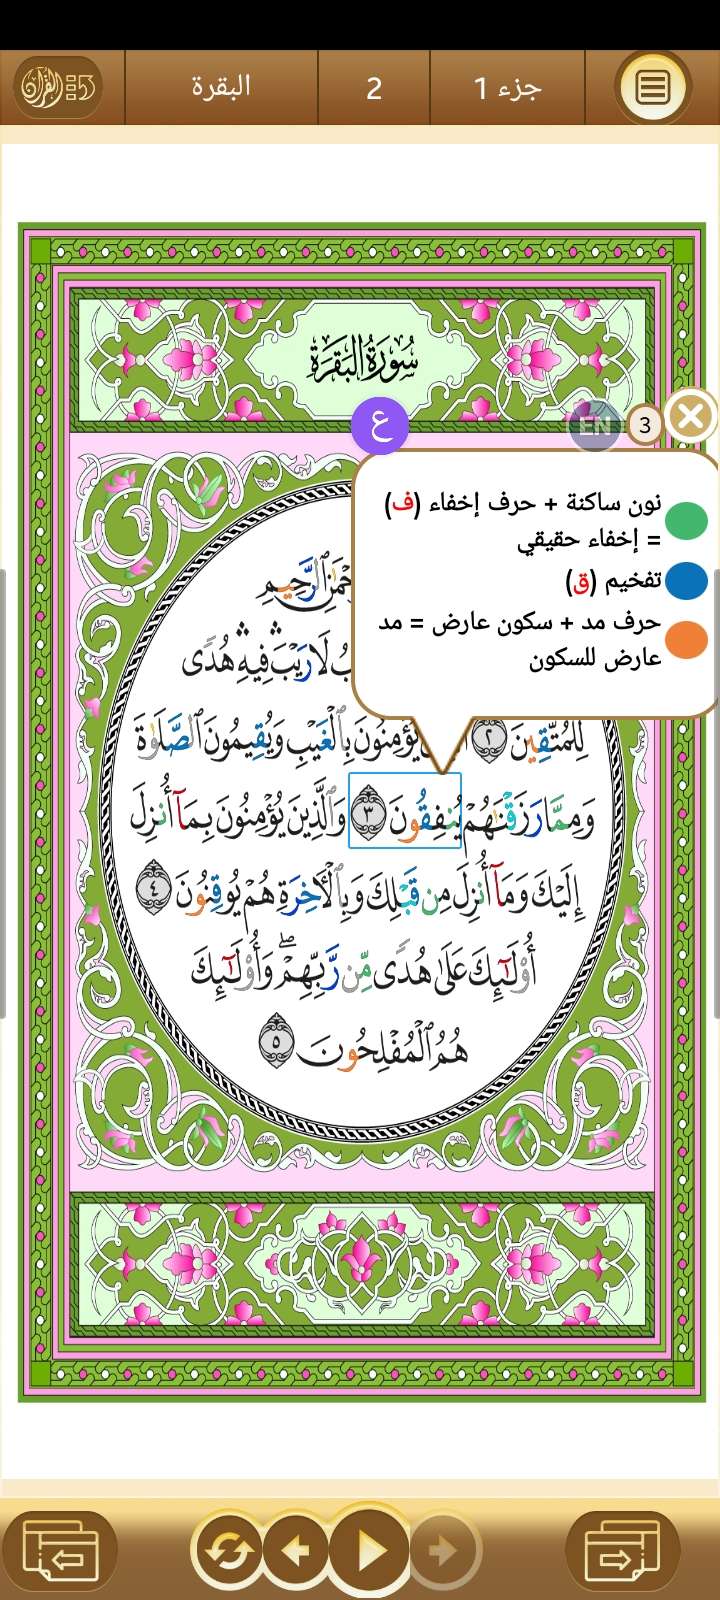 البقرة
2
جزء 1
سُورَةُ البَقَرَةِ
ع
EN
3
نون ساكنة + حرف إخفاء (ف)
= إخفاء حقيقي
تفخيم (ق)
حرف مد + سكون عارض = مد
عارض للسكون
ٱلرَّحِيمِ
لَا رَيْبَ فِيهِ هُدًى
لِلْمُتَّقِينَ ٢ يُؤْمِنُونَ بِٱلْغَيْبِ وَيُقِيمُونَ ٱلصَّلَوٰةَ
وَمِمَّا رَزَقْنَٰهُمْ يُنفِقُونَ ٣ وَٱلَّذِينَ يُؤْمِنُونَ بِمَآ أُنزِلَ
إِلَيْكَ وَمَآ أُنزِلَ مِن قَبْلِكَ وَبِٱلْأَخِرَةِ هُمْ يُوقِنُونَ ٤
أُو۟لَٰٓئِكَ عَلَىٰ هُدًى مِّن رَّبِّهِمْ ۖ وَأُو۟لَٰٓئِكَ
هُمُ ٱلْمُفْلِحُونَ ٥